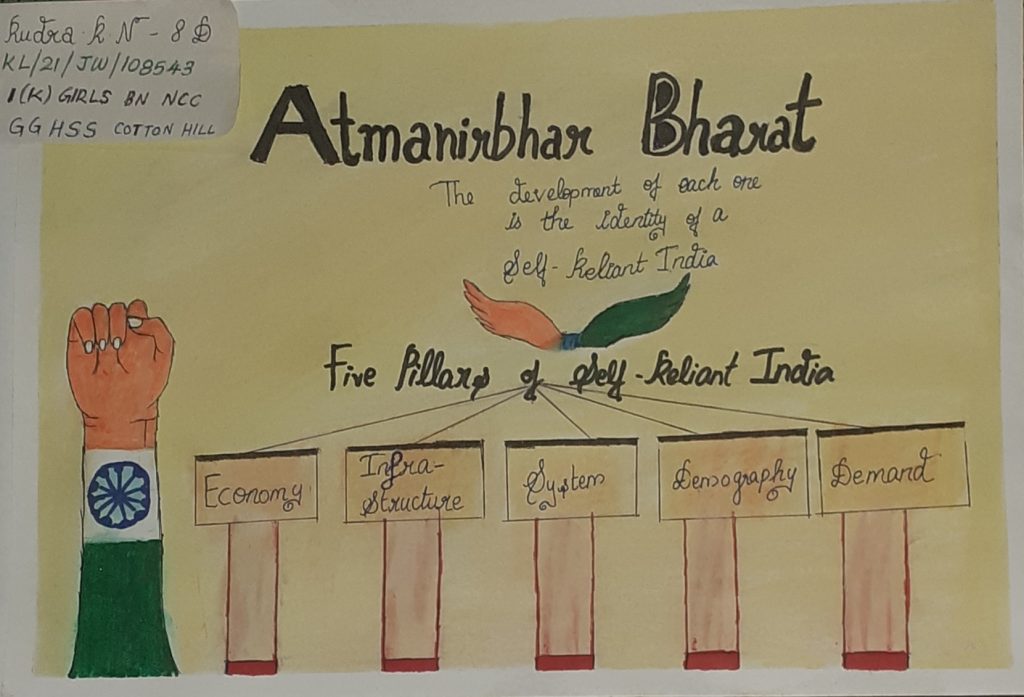 Rudra R N - 8 D
KL/21/JW/108543
1(K) GIRLS BN NCC
GGHSS COTTON HILL
Atmanirbhar Bharat
The development of each one
is the identity of a
Self-Reliant India
Five Pillars of Self-Reliant India
Economy
Infra-
Structure
System
Demography
Demand